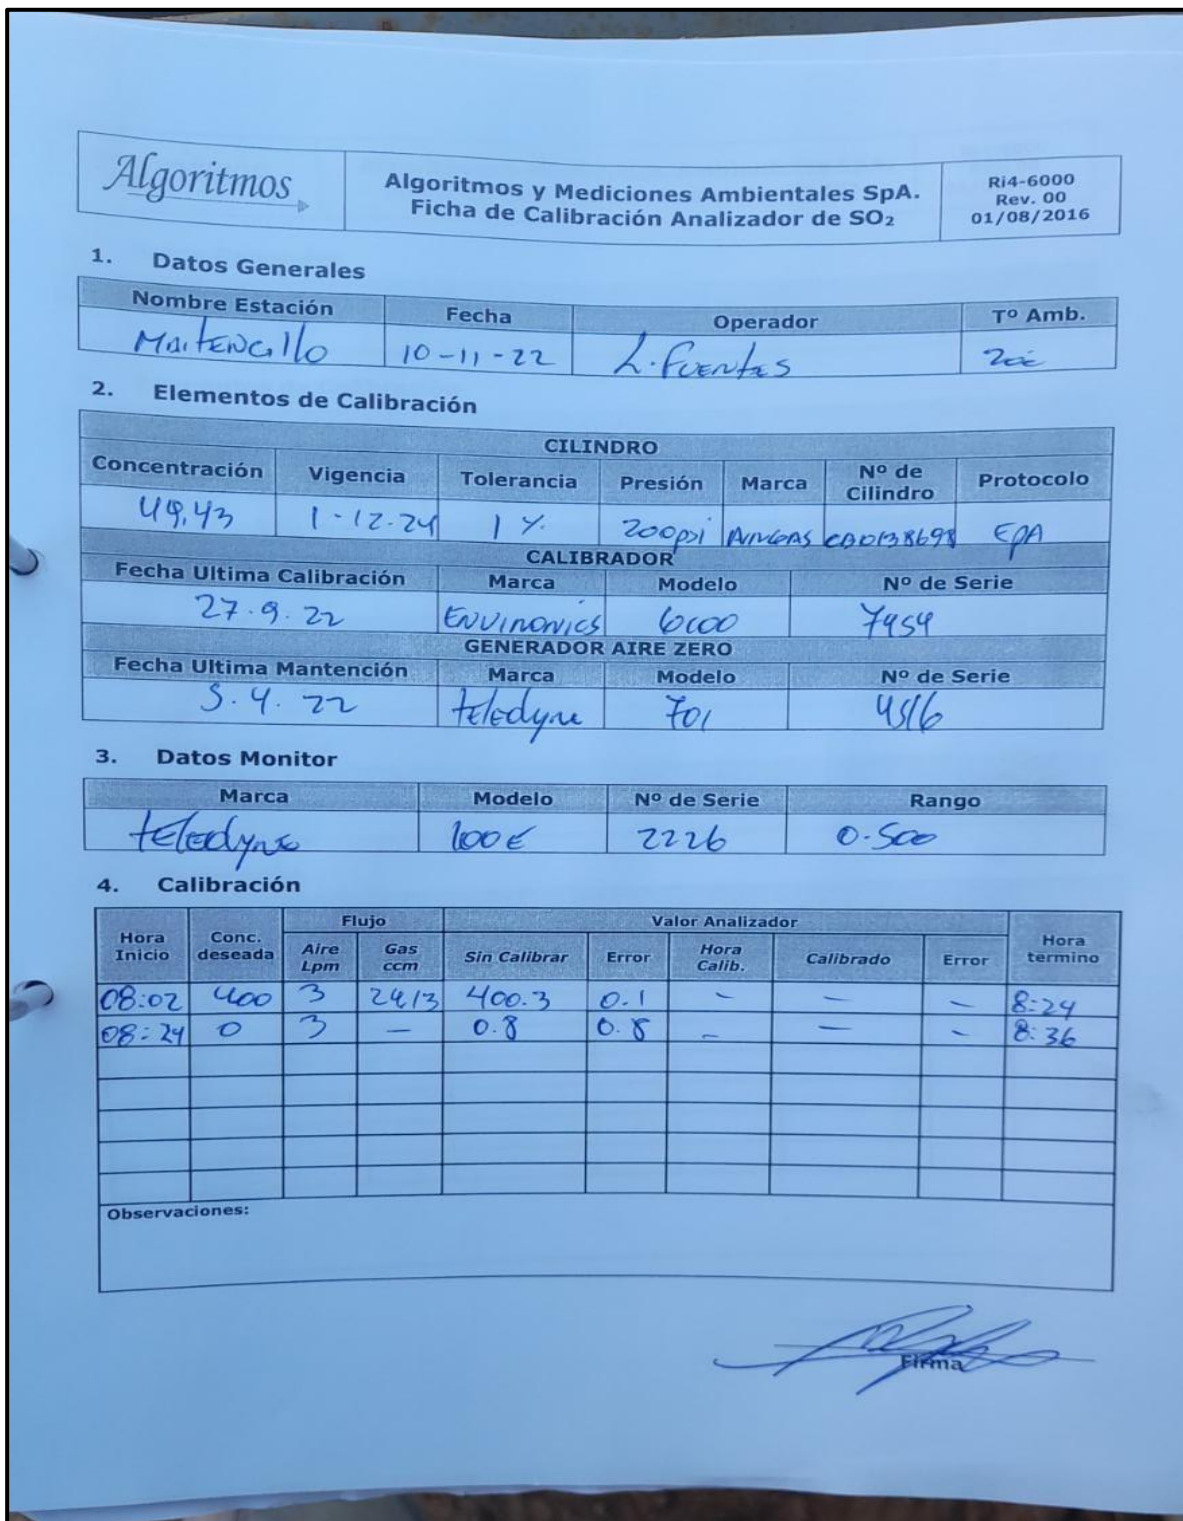 Algoritmos
Algoritmos y Mediciones Ambientales SpA.
Ficha de Calibración Analizador de SO₂
Ri4-6000
Rev. 00
01/08/2016
1. Datos Generales
Nombre Estación Fecha Operador Tº Amb.
Maitencillo 10-11-22 L. Fuentes
2. Elementos de Calibración
CILINDRO
Concentración Vigencia Tolerancia Presión Marca Nº de Cilindro Protocolo
49,43 1-12-24 1 % 200psi AIRGAS EPA
CALIBRADOR
Fecha Ultima Calibración Marca Modelo Nº de Serie
27.9.22 ENVIRONICS 6100 7454
GENERADOR AIRE ZERO
Fecha Ultima Mantención Marca Modelo Nº de Serie
5.4.22 teledyne 701 4516
3. Datos Monitor
Marca Modelo Nº de Serie Rango
teledyne 100E 2226 0-500
4. Calibración
Hora Inicio Conc. deseada Flujo Valor Analizador Hora termino
Aire Lpm Gas ccm Sin Calibrar Error Hora Calib. Calibrado Error
08:02 400 3 24,3 400.3 0.1 – – – 8:24
08:24 0 3 – 0.8 0.8 – – – 8:36
Observaciones:
Firma